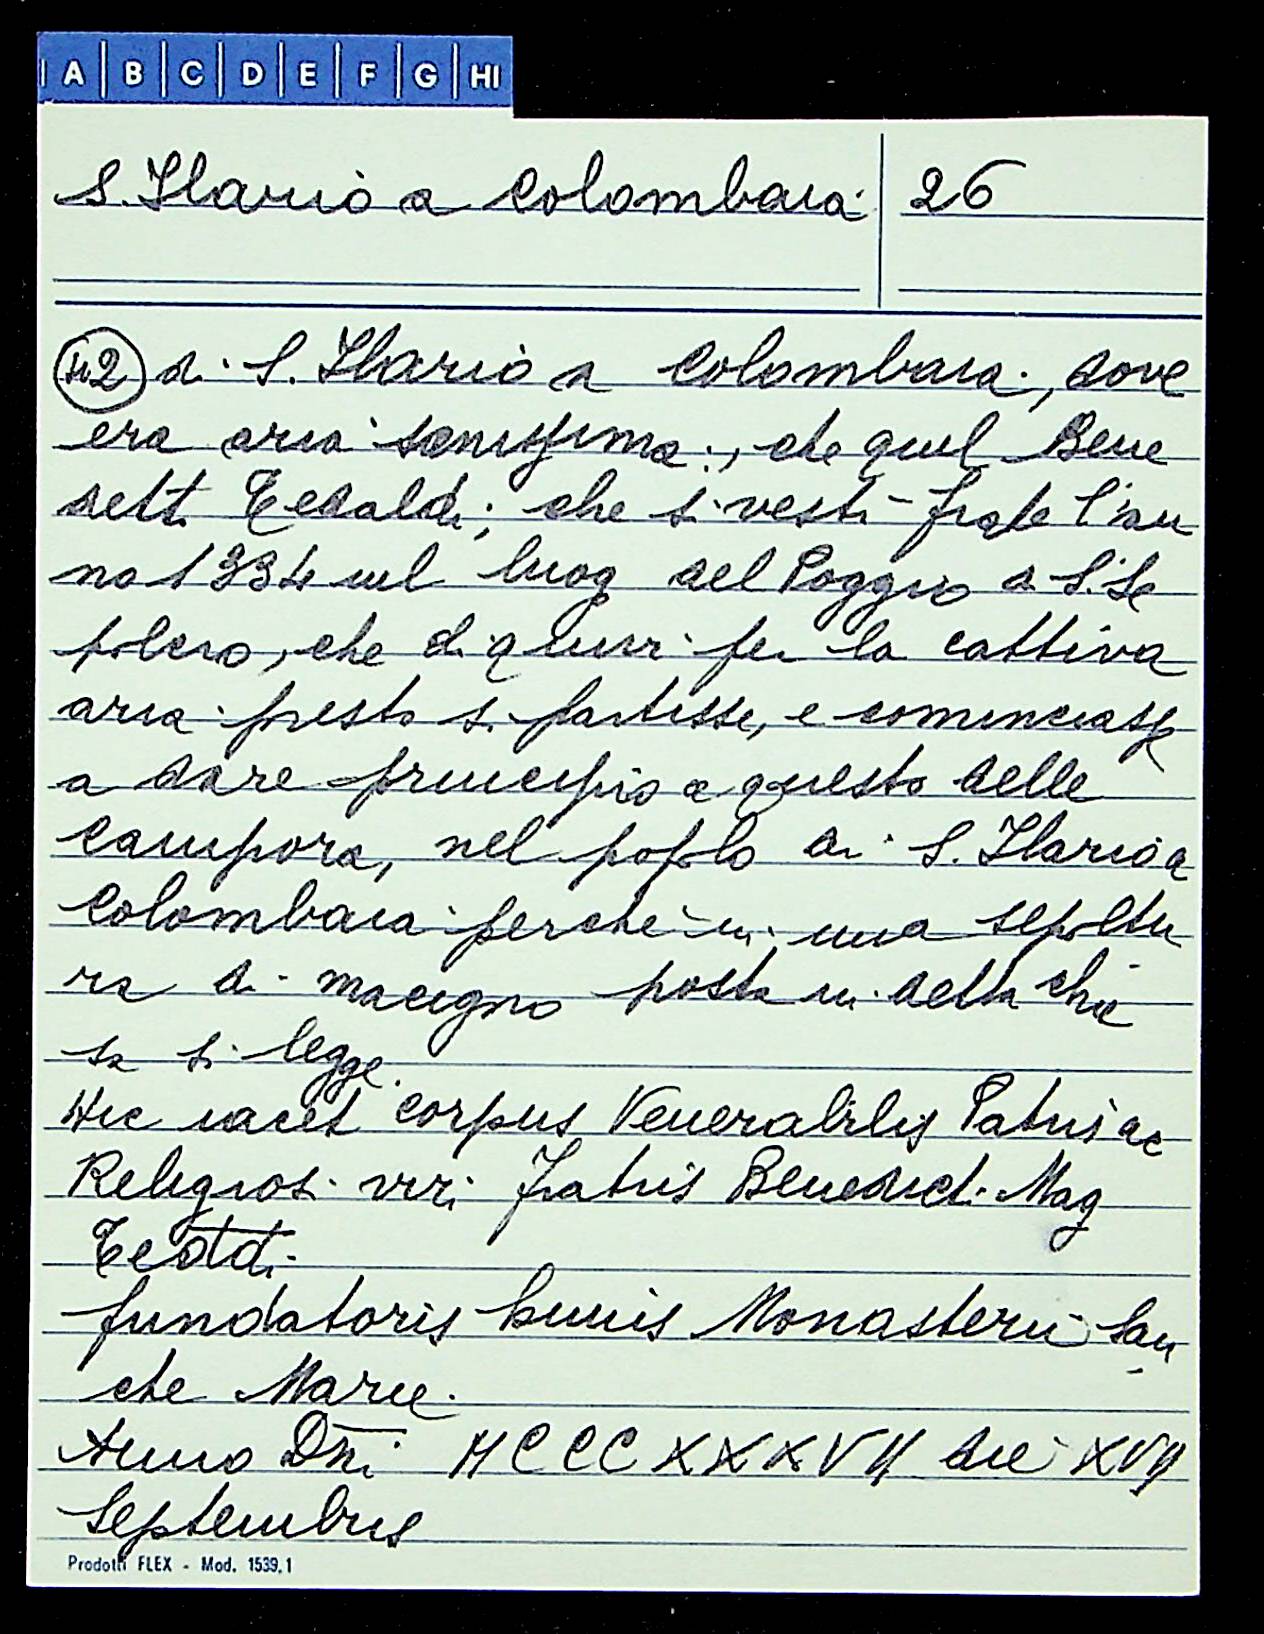 A B C D E F G HI
S. Ilario a Colombaia 26
42 di S. Ilario a Colombaia, dove
era aria sanissima, che quel Bene
detto Tedaldi, che si vestì frate l'an
no 1334 nel luog del Poggio a S. Se
polcro, che di quivi per la cattiva
aria presto si partisse, e cominciasse
a dare principio a questo delle
Campora, nel popolo di S. Ilario a
Colombaia perché in una sepoltu
ra di macigno posta in detta chie
sa si legge.
Hic iacet corpus Venerabilis Patris ac
Religiosi viri Fratris Benedicti Mag
fundatoris huius Monasterii San
cte Marie.
Anno Dni MCCCXXXVII die XVII
Septembris
Prodotti FLEX - Mod. 1539,1